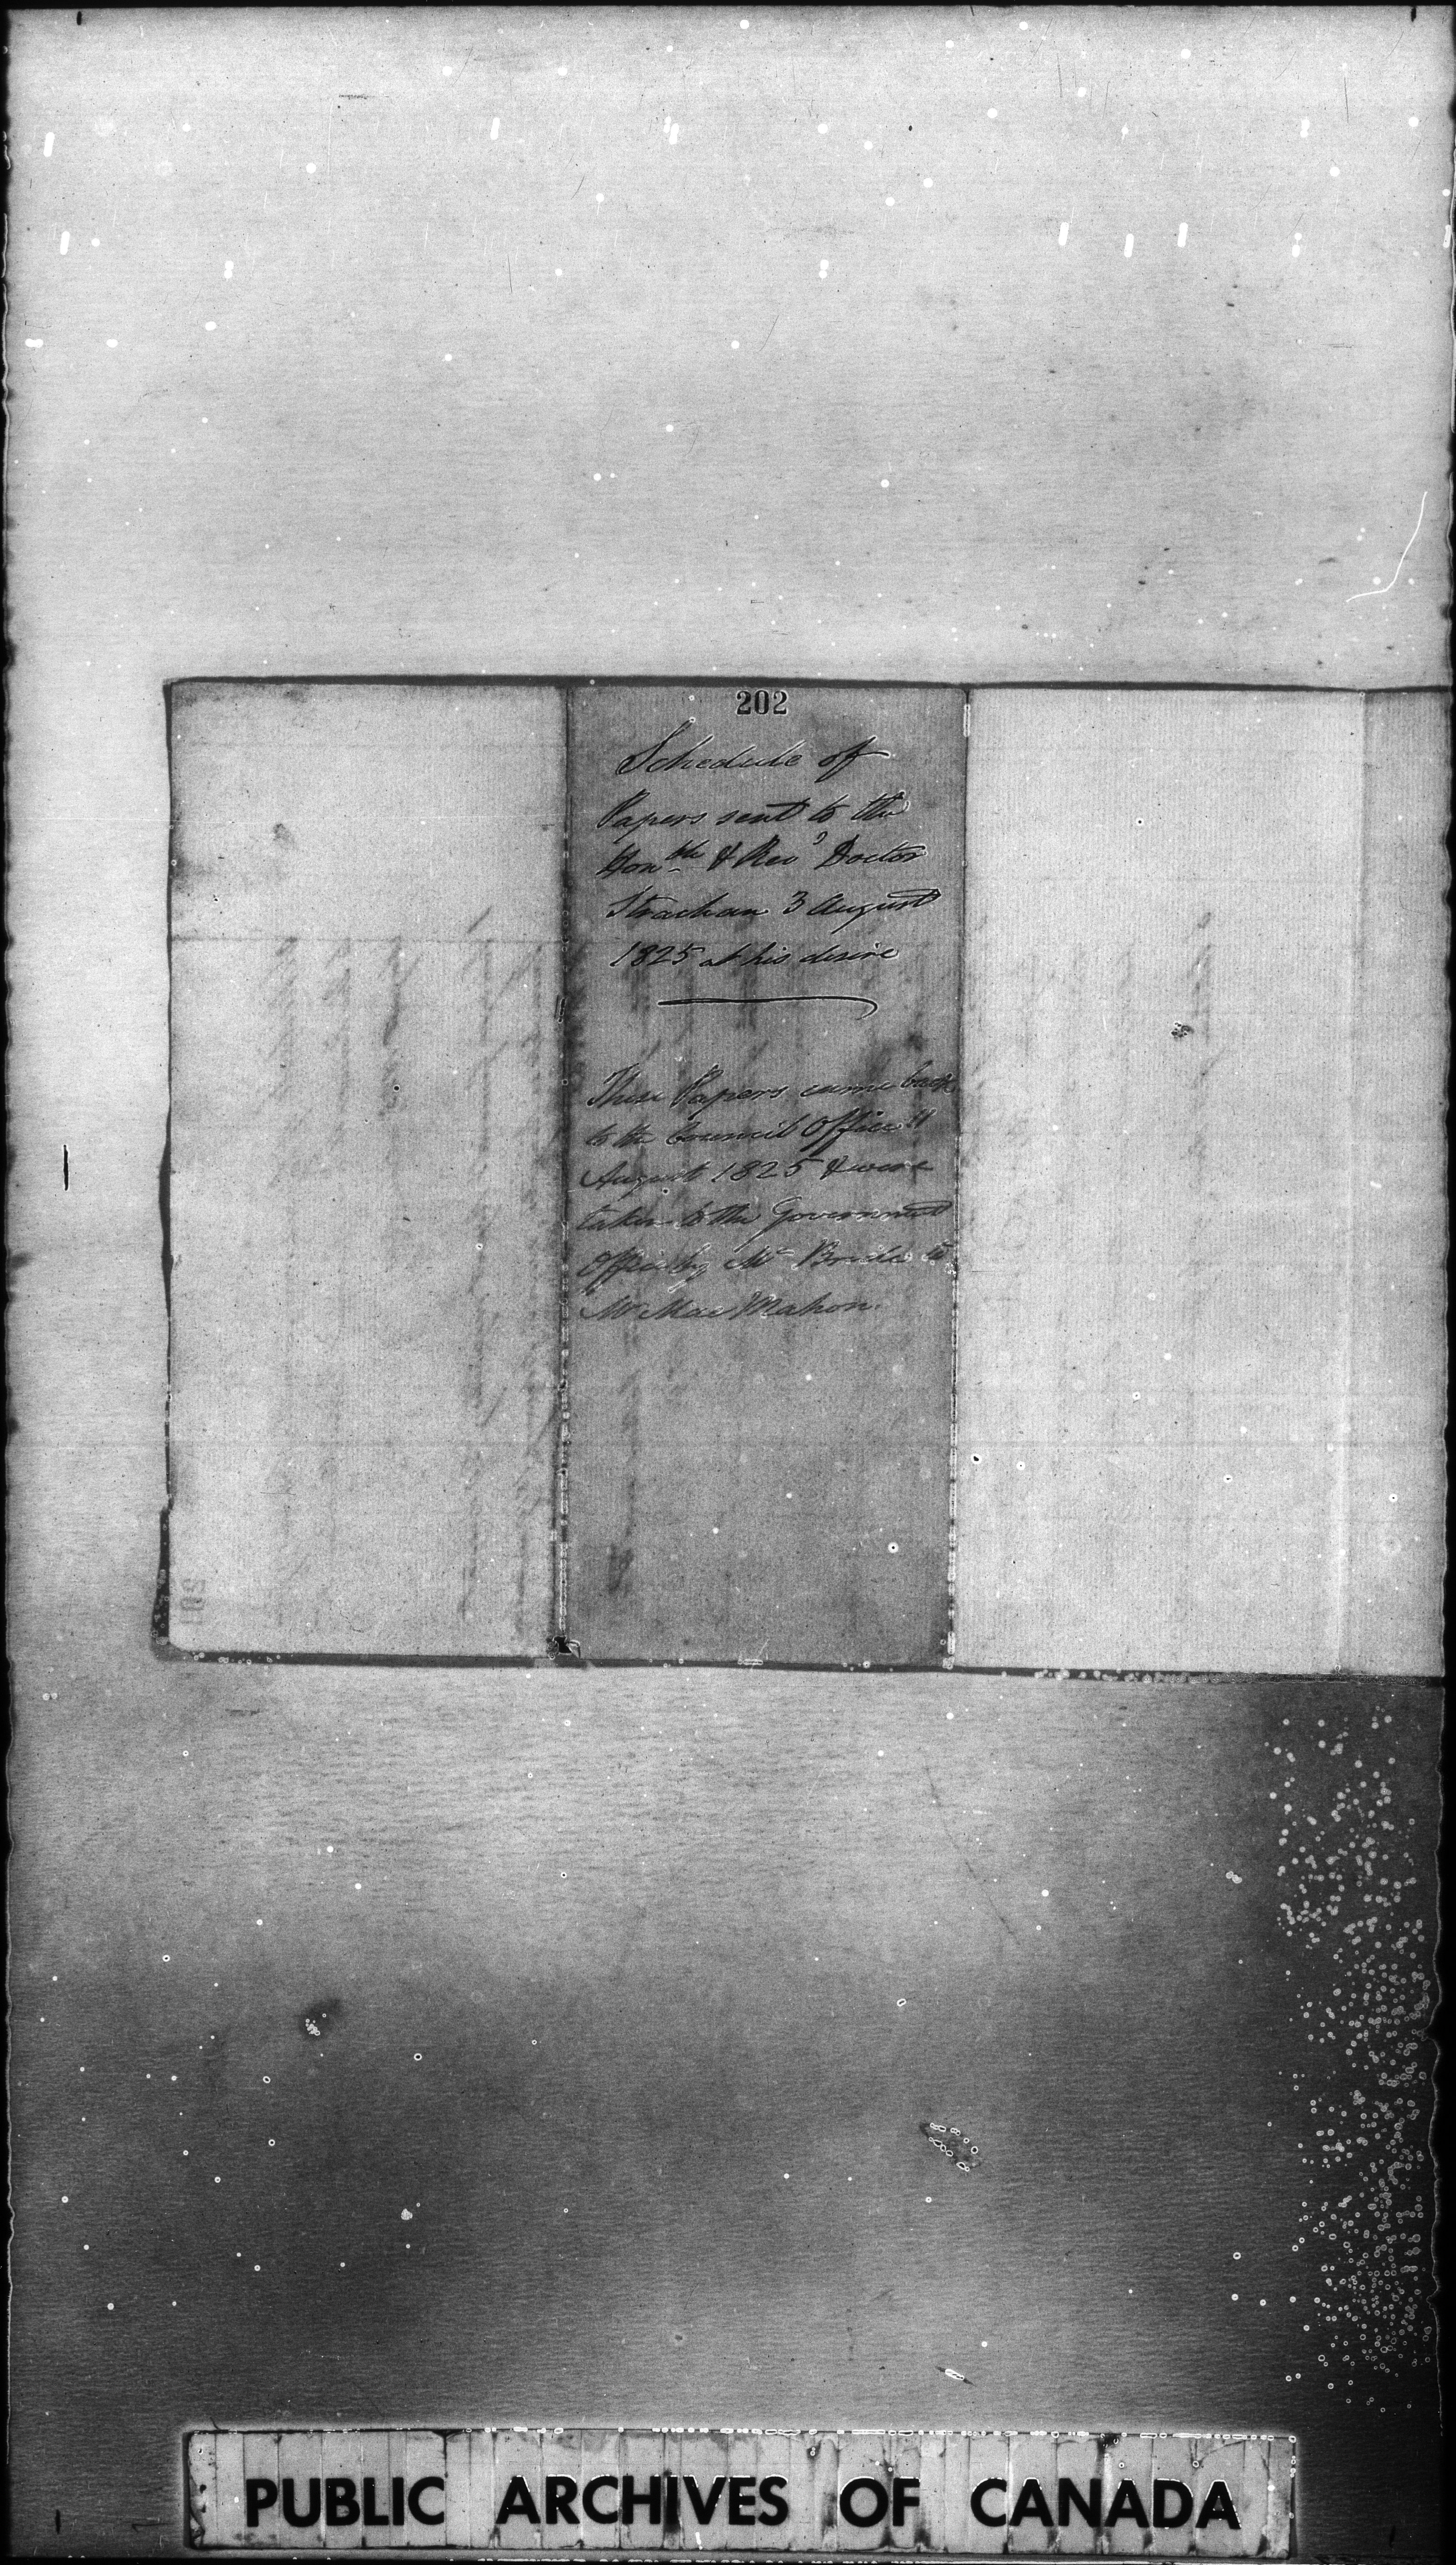 202
Schedule of
Papers sent to the
Hon.ble & Rev'd Doctor
Strachan 3 August
1825 at his desire
These Papers came back
to the Council Office 11
August 1825 & were
taken to the Government
Office by Mr Bride to
Mr Mac Mahon.
201
PUBLIC ARCHIVES OF CANADA